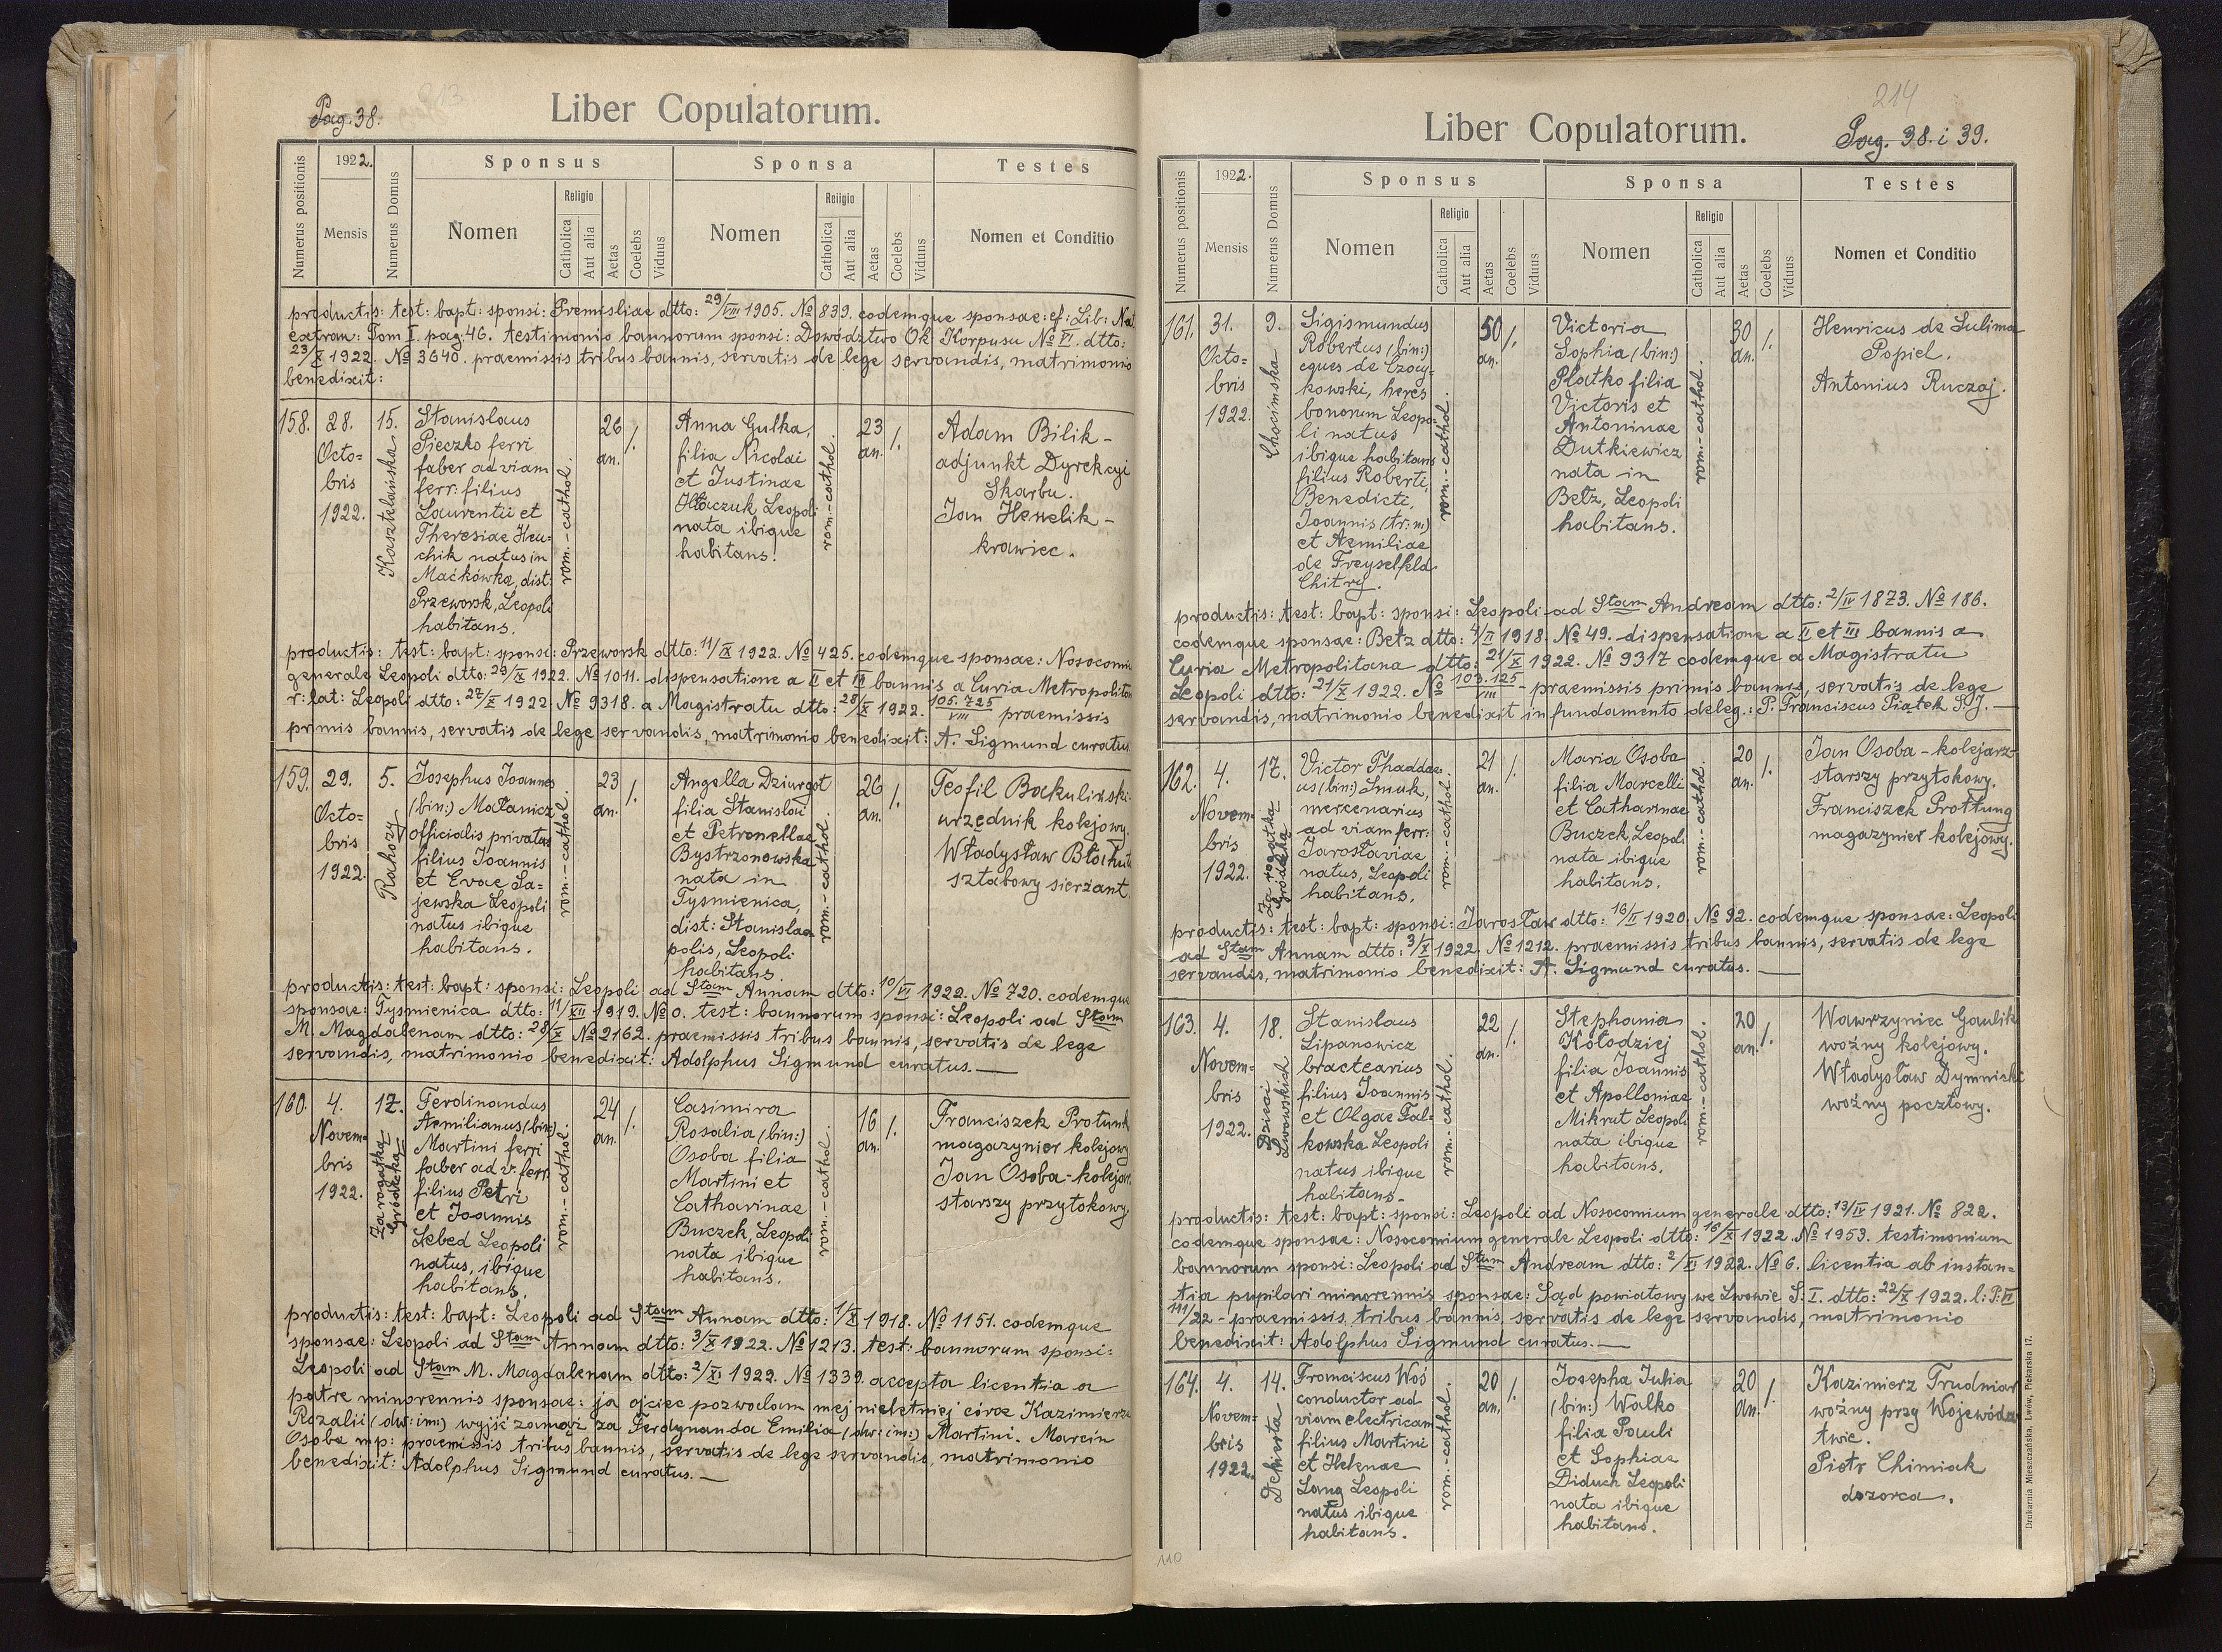 Pag. 38.
Liber Copulatorum.
Numerus positionis
1922.
Mensis
Numerus Domus
Sponsus
Nomen
Religio
Catholica
Aut alia
Aetas
Coelebs
Viduus
Sponsa
Nomen
Religio
Catholica
Aut alia
Aetas
Coelebs
Viduus
Testes
Nomen et Conditio
productis: test: bapt: sponsi: Premisliae dtto: 29/VIII 1905. № 839. eodemque sponsae: cf: Lib: Nat
extran: Tom I. pag: 46. testimonio bannorum sponsi: Dowództwo Ok. Korpusu № VI. dtto:
23/X 1922. № 3640. praemissis tribus bannis, servatis de lege servandis, matrimonio
benedixit:
158.
28.
Octo=
bris
1922.
15.
Kasztelańska
Stanislaus
Pieczko ferri
faber ad viam
ferr: filius
Laurentii et
Theresiae Heu=
chik natus in
Maćkówka, dist:
Przeworsk, Leopoli
habitans.
rom.-cathol.
26
an.
/.
Anna Gulka,
filia Nicolai
et Justinae
Htaczuk, Leopoli
nata ibique
habitans.
rom.-cathol.
23
an.
/.
Adam Bilik -
adjunkt Dyrekcyi
Skarbu.
Jan Henelik -
krawiec.
productis: test: bapt: sponsi: Przeworsk dtto: 11/IX 1922. № 425. codemque sponsae: Nosocomiu
generale Leopoli dtto: 29/X 1922. № 1011. dispensatione a II et III bannis a Curia Metropolitan
r: lat: Leopoli dtto: 27/X 1922 № 9318. a Magistratu dtto: 28/X 1922. 105.725/VIII praemissis
primis bannis, servatis de lege servandis, matrimonio benedixit: A. Sigmund curatus.
159.
29.
Octo=
bris
1922.
5.
Rahozy
Josephus Joannes
(bin:) Matanicz
officialis privatus
filius Joannis
et Evae Sa=
jewska Leopoli
natus ibique
habitans.
rom.-cathol.
23
an.
/.
Angella Dziurgot
filia Stanislai
et Petronellae
Bystrzonowska
nata in
Tysmienica,
dist: Stanislao
polis, Leopoli
habitans.
rom.-cathol.
26
an.
/.
Teofil Bakulinski
urzędnik kolejowy.
Władysław Błohut
sztabowy sierżant.
productis: test: bapt: sponsi: Leopoli ad Stam Annam dtto: 10/VI 1922. № 720. codemque
sponsae: Tysmienica dtto: 11/XII 1919. № 0. test: bannorum sponsi: Leopoli ad Stam
M. Magdalenam dtto: 28/X № 2162. praemissis tribus bannis, servatis de lege
servandis, matrimonio benedixit: Adolphus Sigmund curatus.—
160.
4.
Novem=
bris
1922.
17.
Za rogatką
Gródecką
Ferdinandus
Aemilianus (bin:)
Martini ferri
faber ad v. ferr:
filius Petri
et Joannis
Lebed Leopoli
natus, ibique
habitans.
rom.-cathol.
24
an.
/.
Casimira
Rosalia (bin:)
Osoba filia
Martini et
Catharinae
Buczek, Leopoli
nata ibique
habitans.
rom.-cathol.
16
an.
/.
Franciszek Protunk
magazynier kolejowy
Jan Osoba - kolejarz
starszy przytokowy.
productis: test: bapt: Leopoli ad Stam Annam dtto: 1/X 1918. № 1151. codemque
sponsae: Leopoli ad Stam Annam dtto: 3/X 1922. № 1213. test: bannorum sponsi:
Leopoli ad Stam M. Magdalenam dtto: 2/XI 1922. № 1339. accepta licentia a
patre minorennis sponsae: ja ojciec pozwalam mej nieletniej córce Kazimierze
Rozalii (dw: im:) wyjść zamąż za Ferdynanda Emilia (dw: im:) Martini. Marcin
Osoba mp: praemissis tribus bannis, servatis de lege servandis, matrimonio
benedixit: Adolphus Sigmund curatus.—
214
Liber Copulatorum.
Pag. 38. i 39.
Numerus positionis
1922.
Mensis
Numerus Domus
Sponsus
Nomen
Religio
Catholica
Aut alia
Aetas
Coelebs
Viduus
Sponsa
Nomen
Religio
Catholica
Aut alia
Aetas
Coelebs
Viduus
Testes
Nomen et Conditio
161.
31.
Octo=
bris
1922.
9.
Chocimska
Sigismundus
Robertus (bin:)
eques de Czoy=
kowski, heres
bonorum Leopo=
li natus
ibique habitans
filius Roberti,
Benedicti,
Joannis (tr: n:)
et Aemiliae
de Freyselfeld
Chitry.
rom.-cathol.
50
an.
/.
Victoria
Sophia (bin:)
Platko filia
Victoris et
Antoninae
Dutkiewicz
nata in
Betz, Leopoli
habitans.
rom.-cathol.
30
an.
/.
Henricus de Sulima
Popiel.
Antonius Ruczaj.
productis: test: bapt: sponsi: Leopoli ad Stam Andream dtto: 2/IV 1873. № 186.
codemque sponsae: Betz dtto: 4/II 1918. № 49. dispensatione a II et III bannis a
Curia Metropolitana dtto: 21/X 1922. № 9317 codemque a Magistratu
Leopoli dtto: 21/X 1922. № 103.125/VIII - praemissis primis bannis, servatis de lege
servandis, matrimonio benedixit in fundamento deleg.: P. Franciscus Piątek S.J.—
162.
4.
Novem=
bris
1922.
17.
Za rogatką
Gródecką
Victor Thaddae=
us (bin:) Smuk,
mercenarius
ad viam ferr:
Jaroslaviae
natus, Leopoli
habitans.
rom.-cathol.
21
an.
/.
Maria Osoba
filia Marcelli
et Catharinae
Buczek, Leopoli
nata ibique
habitans.
rom.-cathol.
20
an.
/.
Jan Osoba - kolejarz
starszy przytokowy.
Franciszek Prottung
magazynier kolejowy.
productis: test: bapt: sponsi: Jarosław dtto: 16/II 1920. № 92. codemque sponsae: Leopoli
ad Stam Annam dtto: 3/X 1922. № 1212. praemissis tribus bannis, servatis de lege
servandis, matrimonio benedixit: A. Sigmund curatus.—
163.
4.
Novem=
bris
1922.
18.
Dzieci
Lwowskich
Stanislaus
Lipanowicz
bractearius
filius Joannis
et Olgae Fal=
kowska Leopoli
natus ibique
habitans.
rom.-cathol.
22
an.
/.
Stephania
Kołodziej
filia Joannis
et Apolloniae
Mikrut Leopoli
nata ibique
habitans.
rom.-cathol.
20
an.
/.
Wawrzyniec Gaulik
woźny kolejowy.
Władysław Dymniski
woźny pocztowy.
productis: test: bapt: sponsi: Leopoli ad Nosocomium generale dtto: 13/IV 1921. № 822.
codemque sponsae: Nosocomium generale Leopoli dtto: 16/X 1922. № 1953. testimonium
bannorum sponsi: Leopoli ad Stam Andream dtto: 2/XI 1922. № 6. licentia ab instan=
tia pupilari minorennis sponsae: Sąd powiatowy we Lwowie S: I. dtto: 22/X 1922. l: P: VI
111/22 - praemissis tribus bannis, servatis de lege servandis, matrimonio
benedixit: Adolphus Sigmund curatus.—
164.
4.
Novem=
bris
1922.
14.
Dekierta
Franciscus Woś
conductor ad
viam electricam
filius Martini
et Helenae
Lang Leopoli
natus ibique
habitans.
rom.-cathol.
20
an.
/.
Josepha Julia
(bin:) Walko
filia Pauli
et Sophiae
Diduch Leopoli
nata ibique
habitans.
20
an.
/.
Kazimierz Trudniar
woźny przy Wojewódz
twie.
Piotr Chimiak
dozorca.
Drukarnia Mieszczańska, Lwów, Piekarska 17.
110